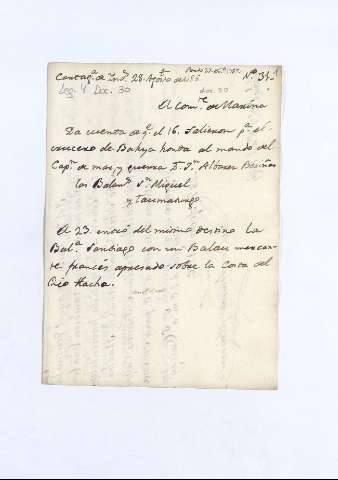 Cartag.ª de Ind.s 28. Agosto de 86
Nº 34
Leg. 4 Doc. 30
doc. 30
El Com.te de Marina
Da cuenta de q.e el 16. Salieron p.ª el
crucero de Bahya honda al mando del
Cap.n de mar, y guerra D. J.n Albarez
los Balan.s S.n Miguel
y
El 23. envió del mismo destino la
Bal.ª Santiago con un Balau mercan-
te francés apresado sobre la Costa del
Rio Hacha.